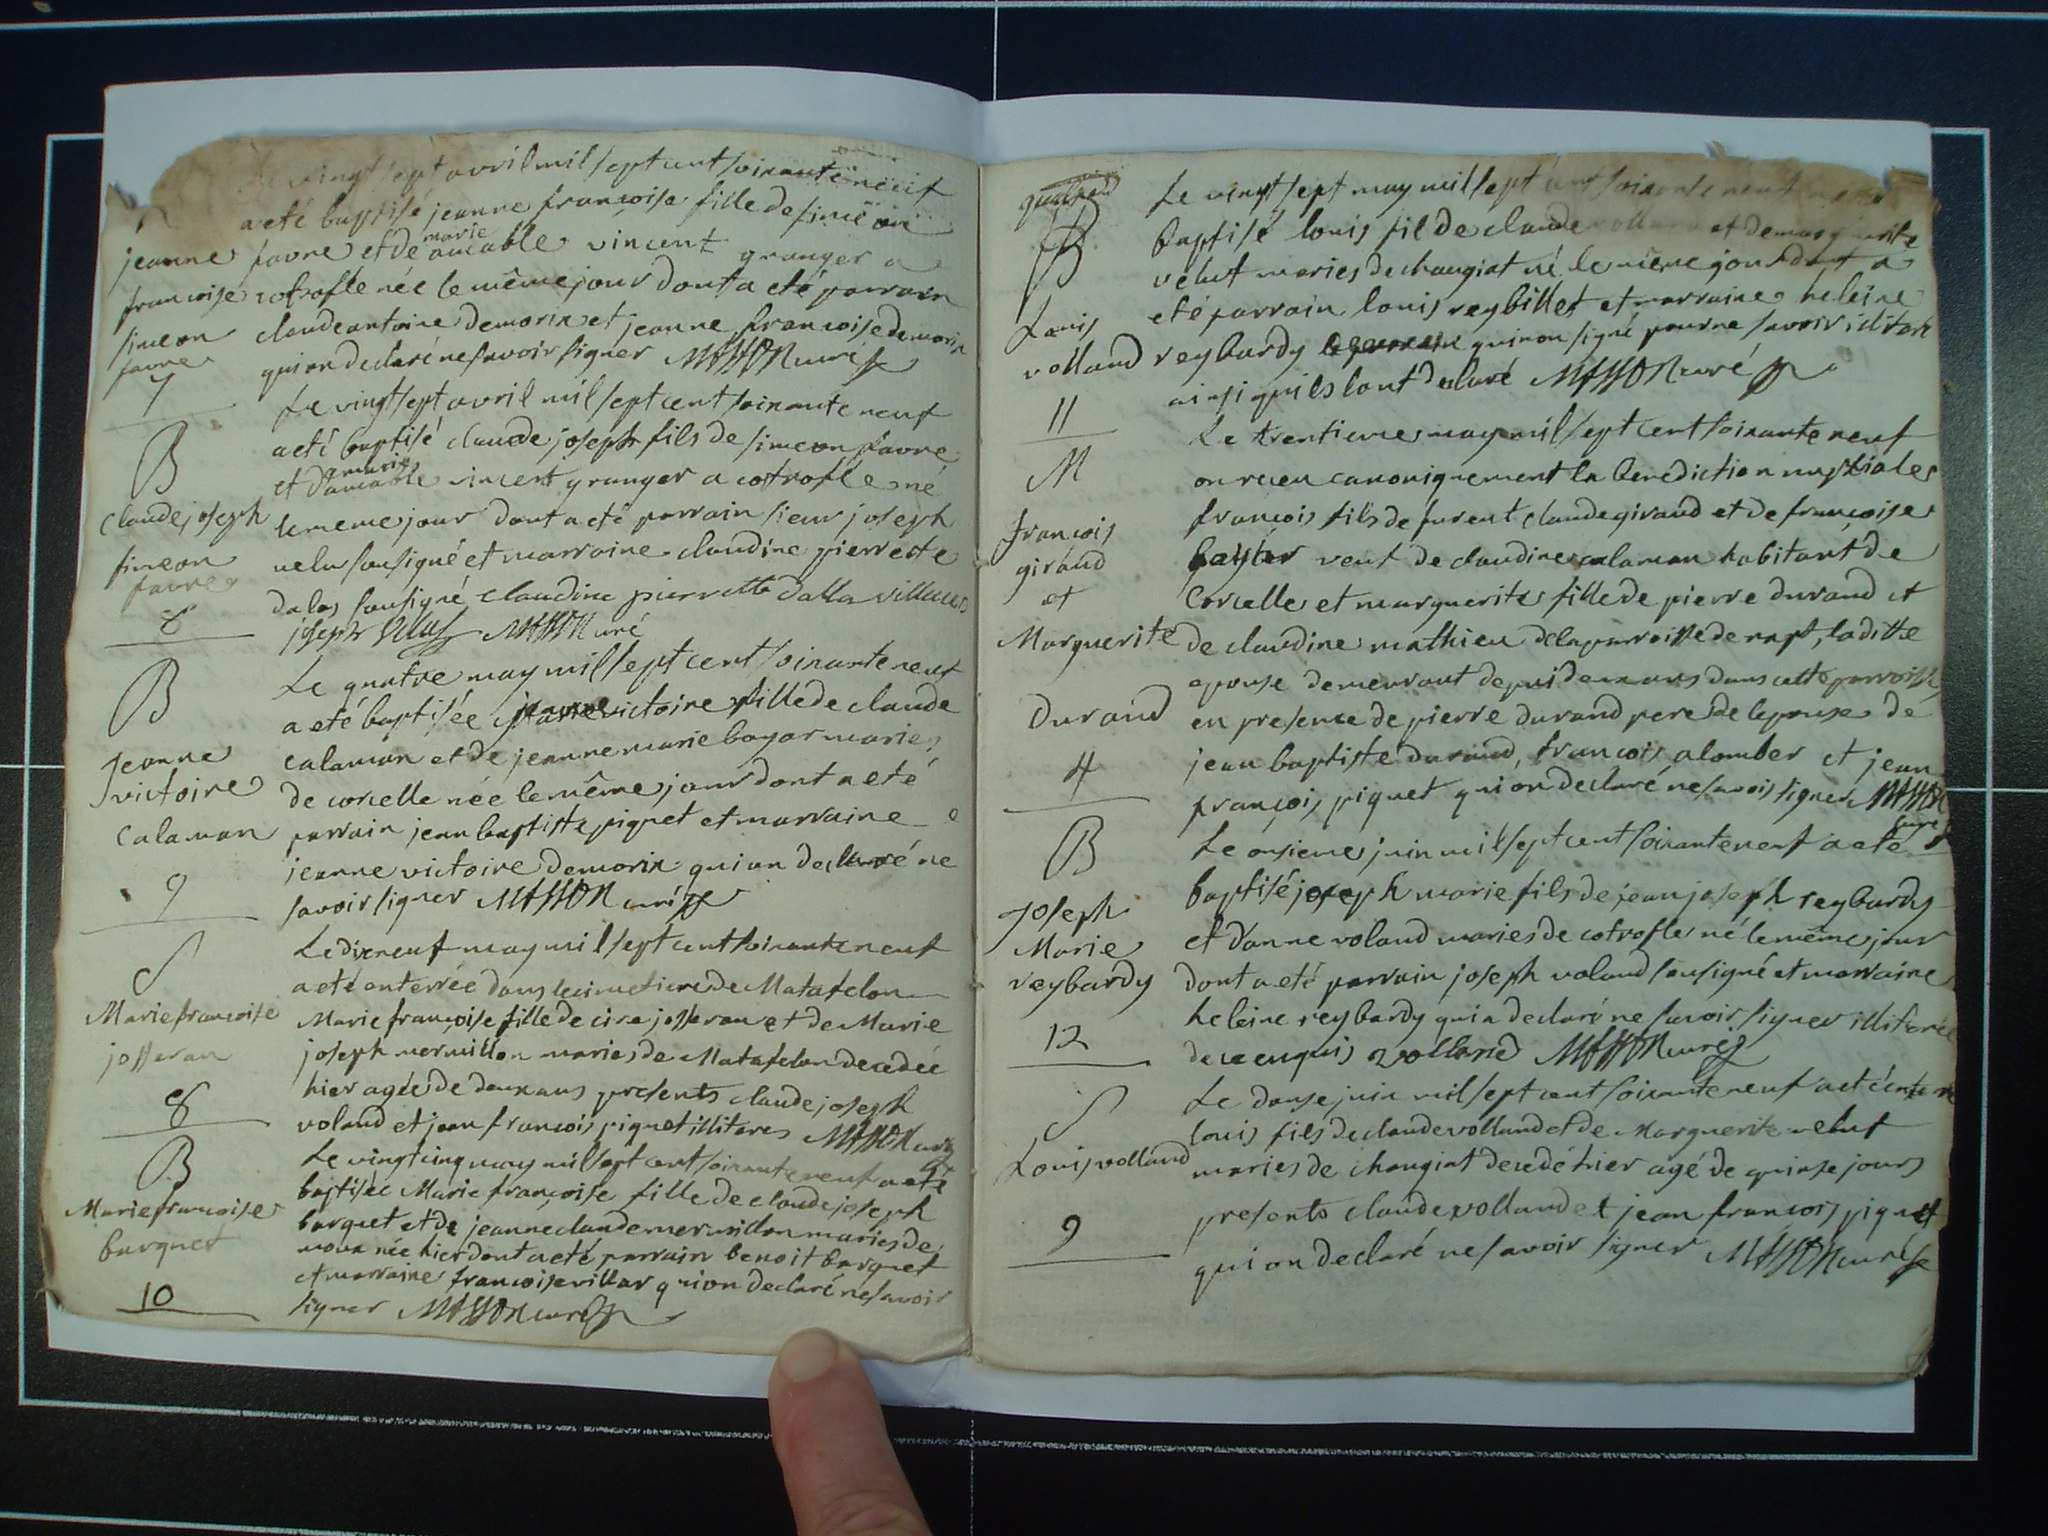 Le vingt sept avril mil sept cent soixante neuf
a eté baptisé jeanne françoise fille de simeon
jeanne favre et de marie amable vincent granger a
francoise cotrofle née le même jour dont a eté parrain
simeon claude antoine demorix et jeanne francoise demorix
favre qui on declaré ne savoir signer MASSON curé
7
Le vingt sept avril mil sept cent soixante neuf
B a eté baptisé claude joseph fils de simeon favre
et d'amable marie vincent granger a cotrofle né
Claude joseph le meme jour dont a eté parrain sieur joseph
simeon velu sousigné et marraine claudine pierrette
favre dalas sousigné claudine pierrette dalla villecus
8 joseph Velus MASSON curé
Le quatre may mil sept cent soixante neuf
B a eté baptisée jeanne victoire fille de claude
Jeanne calaman et de jeanne marie bayar maries
victoire de corcelle née le même jour dont a eté
Calaman parrain jean baptiste piquet et marraine
jeanne victoire demorix qui on declaré ne
9 savoir signer MASSON curé
Le dix neuf may mil sept cent soixante neuf
S a eté enterrée dans le cimetiere de Matafelon
Marie francoise Marie françoise fille de josseran et de Marie
josseran joseph mermillon maries de Matafelon decedée
hier agée de deux ans presents claude joseph
8 voland et jean francois piquet illiteres MASSON curé
B Le vingt cinq may mil sept cent soixante neuf a eté
baptisée Marie françoise fille de claude joseph
Marie francoise barquet et de jeanne claude mermillon maries de
barquet noux née hier dont a eté parrain benoit barquet
et marraine francoise villar qui on declaré ne savoir
10 signer MASSON curé
Le vingt sept may mil sept cent soixante neuf
B baptisé louis fil de claude volland et de marguerite
velut maries de changiat né le même jour dont a
Louis eté parrain louis reybillet et marraine heleine
volland reybardy qui non signé pour ne savoir
11 ainsi quils lont declaré MASSON curé
Le trentieme may mil sept cent soixante neuf
M on receu canoniquement la benediction nuptiale
francois francois fils de furent claude giraud et de francoise
giraud veuf de claudine calaman habitant de
et Corcelle et marguerite fille de pierre durand et
Marguerite de claudine mathieu de la parroisse de napt, laditte
epouse demeurant depui deux ans dans cette parroisse
Durand en presence de pierre durand pere de lepouse de
4 jean baptiste durand, francois alomber et jean
françois piquet qui on declaré ne savoir signer MASSON
curé
B Le onsieme juin mil sept cent soixante neuf a eté
Joseph baptisé joseph marie fils de jean joseph reybardy
Marie et d'anne voland maries de cotrofle né le même jour
reybardy dont a eté parrain joseph voland sousigné et marraine
heleine reybardy qui a declaré ne savoir signer
12 de ce enquis volland MASSON curé
S Le douse juin mil sept cent soixante neuf a eté
louis fils de claude volland et de Marguerite velut
Louis volland maries de changiat decedé hier agé de quinse jours
presents claude volland et jean francois piquet
9 qui on declaré ne savoir signer MASSON curé